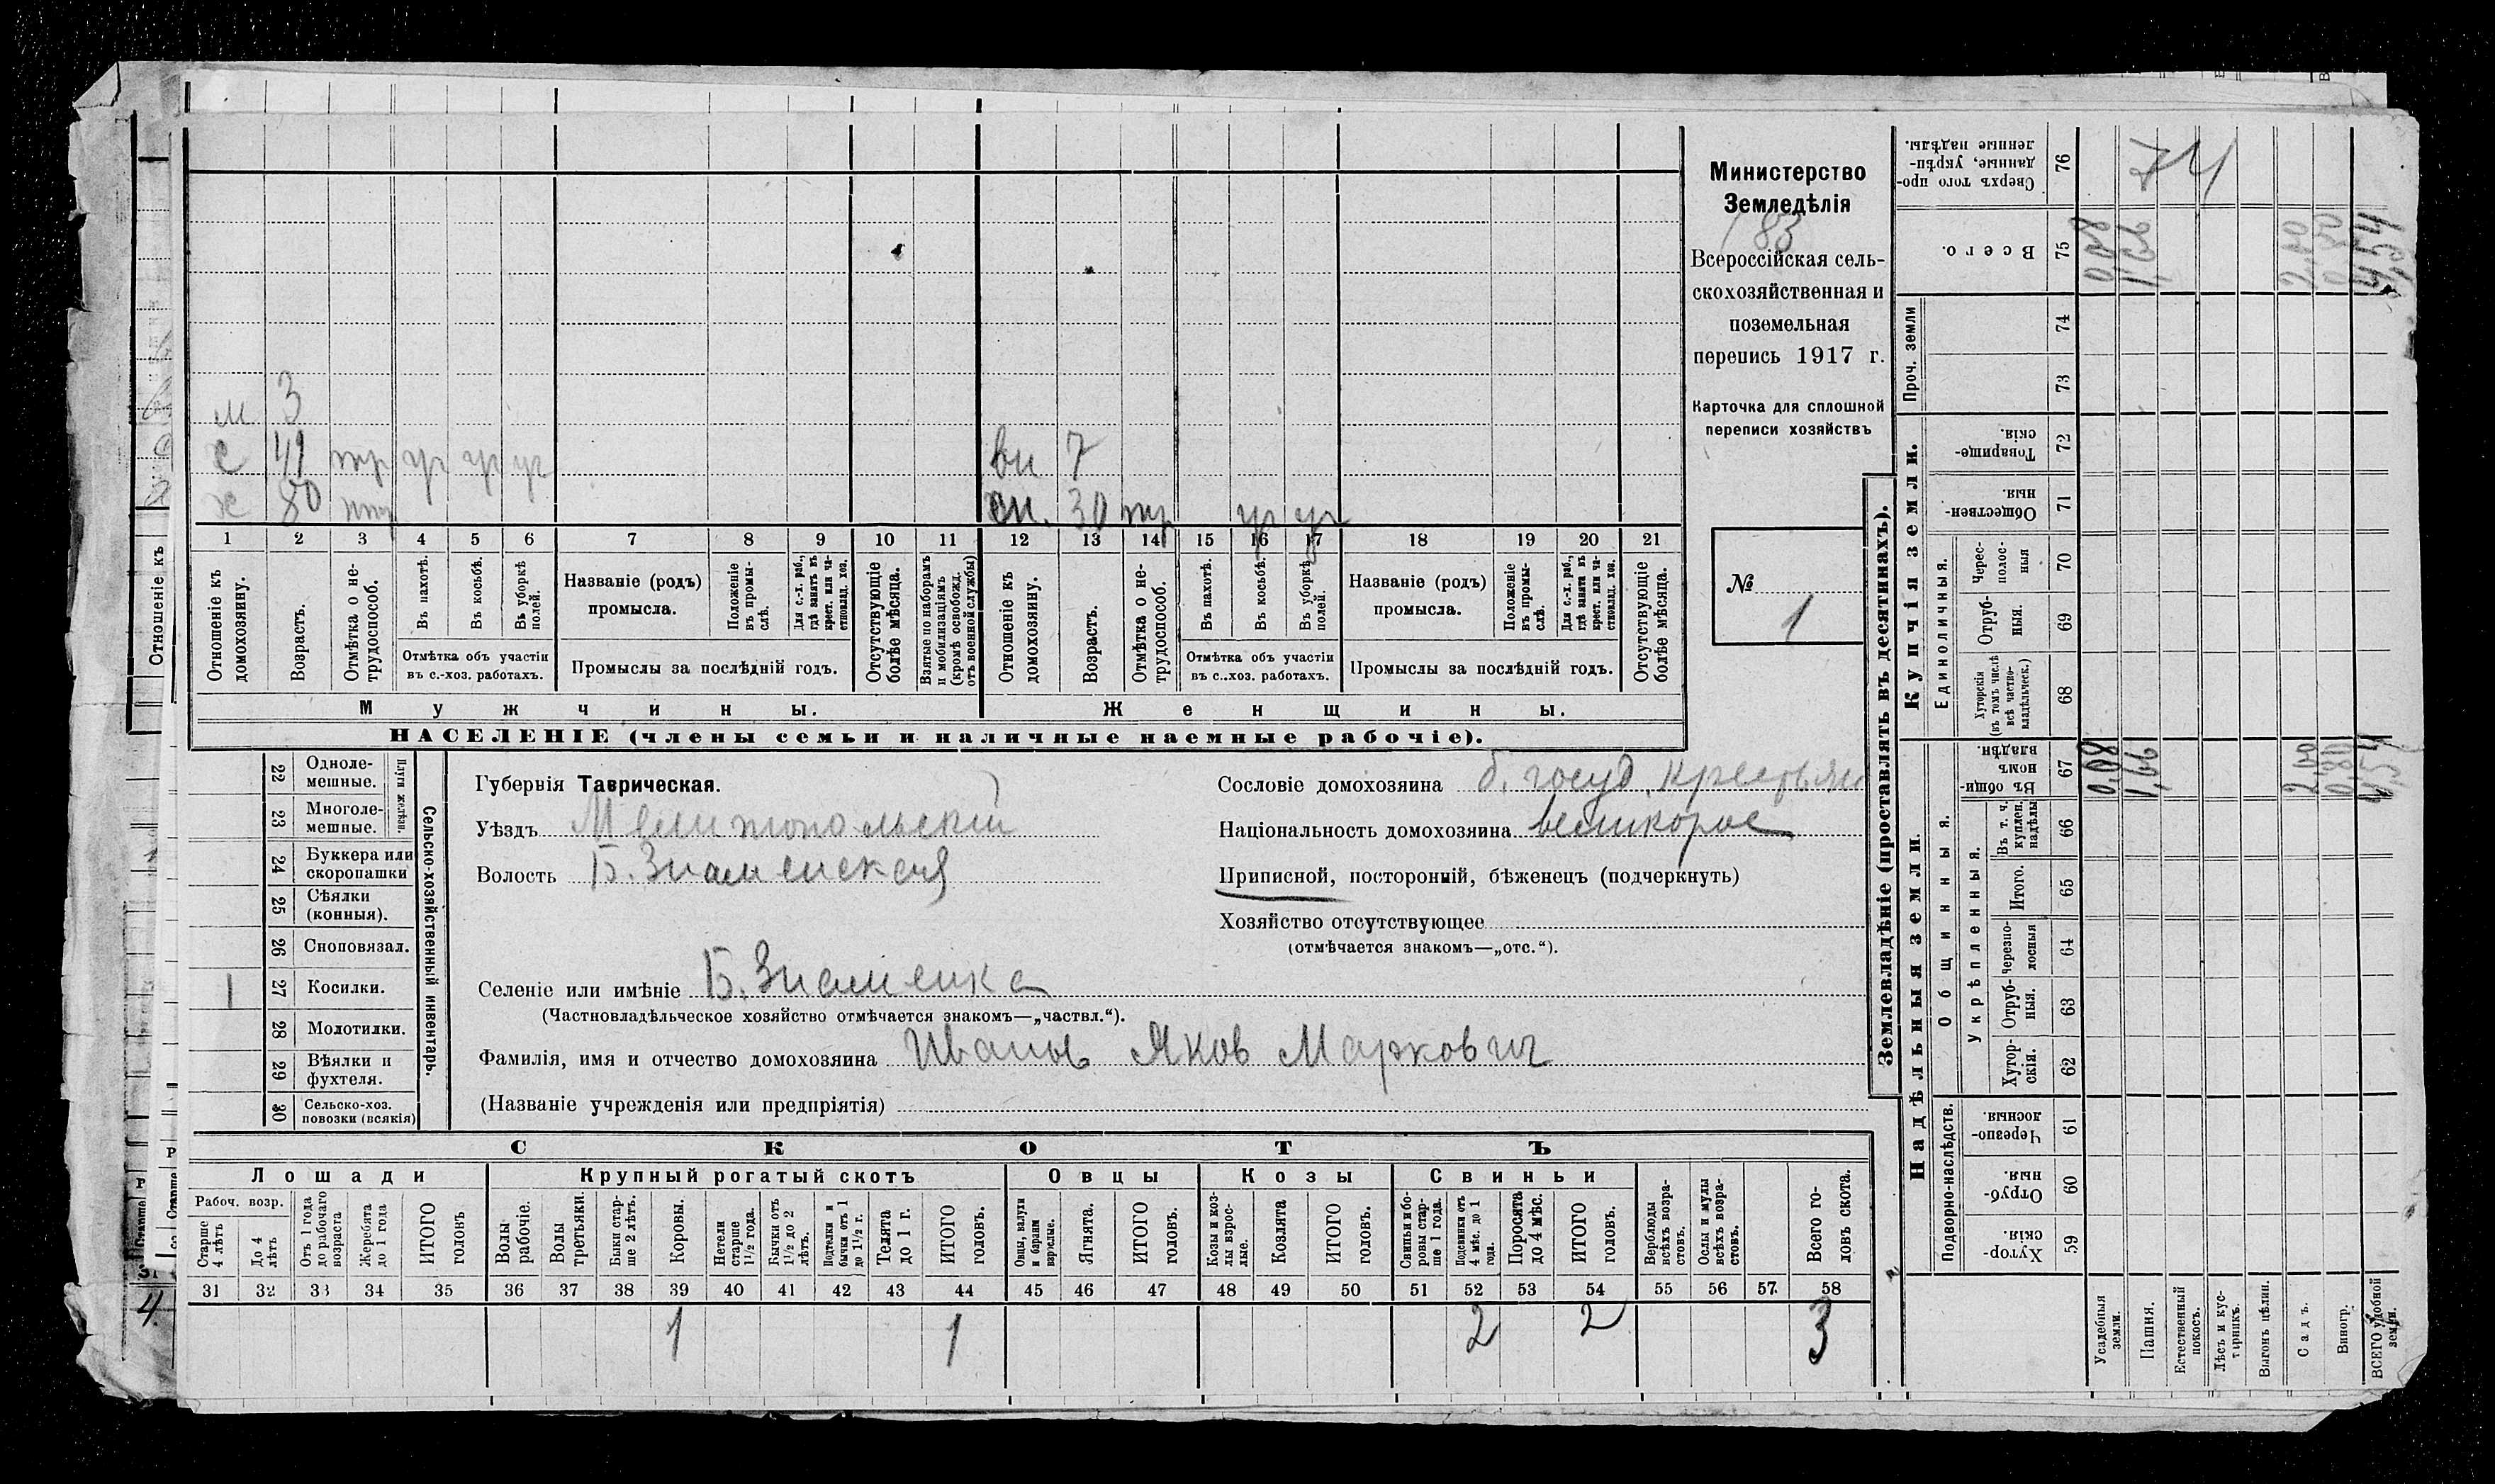 Министерство
Земледѣлія
183
Всероссійская сель-
скохозяйственная и
поземельная
перепись 1917 г.
Карточка для сплошной
переписи хозяйствъ
№ 1
м 3
с 41 тр уч уч уч
вн 7
х 80 нтр
сн. 30 тр уч уч
1 2 3 4 5 6 7 8 9 10 11 12 13 14 15 16 17 18 19 20 21
Отношеніе къ домохозяину.
Возрастъ.
Отмѣтка о не-трудоспособ.
Въ пахотѣ.
Въ косьбѣ.
Въ уборкѣ полей.
Отмѣтка объ участіи
въ с.-хоз. работахъ.
Названіе (родъ)
промысла.
Положеніе въ промы-слѣ.
Для с.-х. раб., гдѣ занятъ въ крест. или ча-стновлад. хоз.
Промыслы за послѣдній годъ.
Отсутствующіе болѣе мѣсяца.
Взятые по наборамъ и мобилизаціямъ (кромѣ освобожд. отъ военной службы)
Отношеніе къ домохозяину.
Возрастъ.
Отмѣтка о не-трудоспособ.
Въ пахотѣ.
Въ косьбѣ.
Въ уборкѣ полей.
Отмѣтка объ участіи
въ с..хоз. работахъ.
Названіе (родъ)
промысла.
Положеніе въ промы-слѣ.
Для с.-х. раб., гдѣ занята въ крест. или ча-стновлад. хоз.
Промыслы за послѣдній годъ.
Отсутствующіе болѣе мѣсяца.
Мужчины.
Женщины.
НАСЕЛЕНІЕ (члены семьи и наличные наемные рабочіе).
22 Одноле-мешные.
23 Многоле-мешные.
Плуги желѣзн.
24 Буккера или скоропашки
25 Сѣялки (конныя).
26 Сноповязал.
1 27 Косилки.
28 Молотилки.
29 Вѣялки и фухтеля.
30 Сельско-хоз. повозки (всякія)
Сельско-хозяйственный инвентарь.
Губернія Таврическая.
Уѣздъ Мелитопольскій
Волость Б. Знаменская
Сословіе домохозяина б. госуд. крестьян
Національность домохозяина великорос
Приписной, посторонній, бѣженецъ (подчеркнуть)
Хозяйство отсутствующее
(отмѣчается знакомъ—„отс.“).
Селеніе или имѣніе Б. Знаменка
(Частновладѣльческое хозяйство отмѣчается знакомъ—„частвл.“).
Фамилія, имя и отчество домохозяина Иванов Яков Маркович
(Названіе учрежденія или предпріятія)
СКОТЪ
Лошади
Крупный рогатый скотъ
Овцы
Козы
Свиньи
Рабоч. возр.
Старше 4 лѣтъ
До 4 лѣтъ
Отъ 1 года до рабочаго возраста
Жеребята до 1 года
ИТОГО головъ
Волы рабочіе.
Волы третьяки.
Быки стар-ше 2 лѣтъ.
Коровы.
Нетели старше 1½ года.
Бычки отъ 1½ до 2 лѣтъ.
Подтелки и бычки отъ 1 до 1½ г.
Телята до 1 г.
ИТОГО головъ.
Овцы, валухи и бараны взрослые.
Ягнята.
ИТОГО головъ.
Козы и коз-лы взрос-лые.
Козлята
ИТОГО головъ.
Свиньи и бо-ровы стар-ше 1 года.
Подсвинки отъ 4 мѣс. до 1 года.
Поросята до 4 мѣс.
ИТОГО головъ.
Верблюды всѣхъ возра-стовъ.
Ослы и мулы всѣхъ возра-стовъ.
Всего го-ловъ скота.
31 32 33 34 35 36 37 38 39 40 41 42 43 44 45 46 47 48 49 50 51 52 53 54 55 56 57. 58
1 1 2 2 3
Землевладѣніе (проставлять въ десятинахъ).
Сверхъ того про-данные, укрѣп-ленные надѣлы. 76
Всего. 75
Проч. земли
74
73
Купчія земли.
Товарище-скія. 72
Обществен-ныя. 71
Единоличныя.
Черес-полос-ныя 70
Отруб-ныя. 69
Хуторскія (въ томъ числѣ всѣ частно-владѣльческ.) 68
Надѣльныя земли.
Общинныя.
Въ общин-номъ владѣн. 67
Укрѣпленныя.
Въ т. ч. куплен. надѣлы 66
Итого. 65
Черезпо-лосныя 64
Отруб-ныя. 63
Хутор-скія. 62
Подворно-наслѣдств.
Черезпо-лосныя 61
Отруб-ныя. 60
Хутор-скія. 59
Усадебныя земли.
Пашня.
Естественный покосъ.
Лѣсъ и кус-тарникъ.
Выгонъ цѣлин.
Садъ.
Виногр.
ВСЕГО удобной земли.
74
0,08 1,66 2,00 0,80 4,54
0,08 1,66 2,00 0,80 4,54
4,54
Отношеніе къ
Старше
4